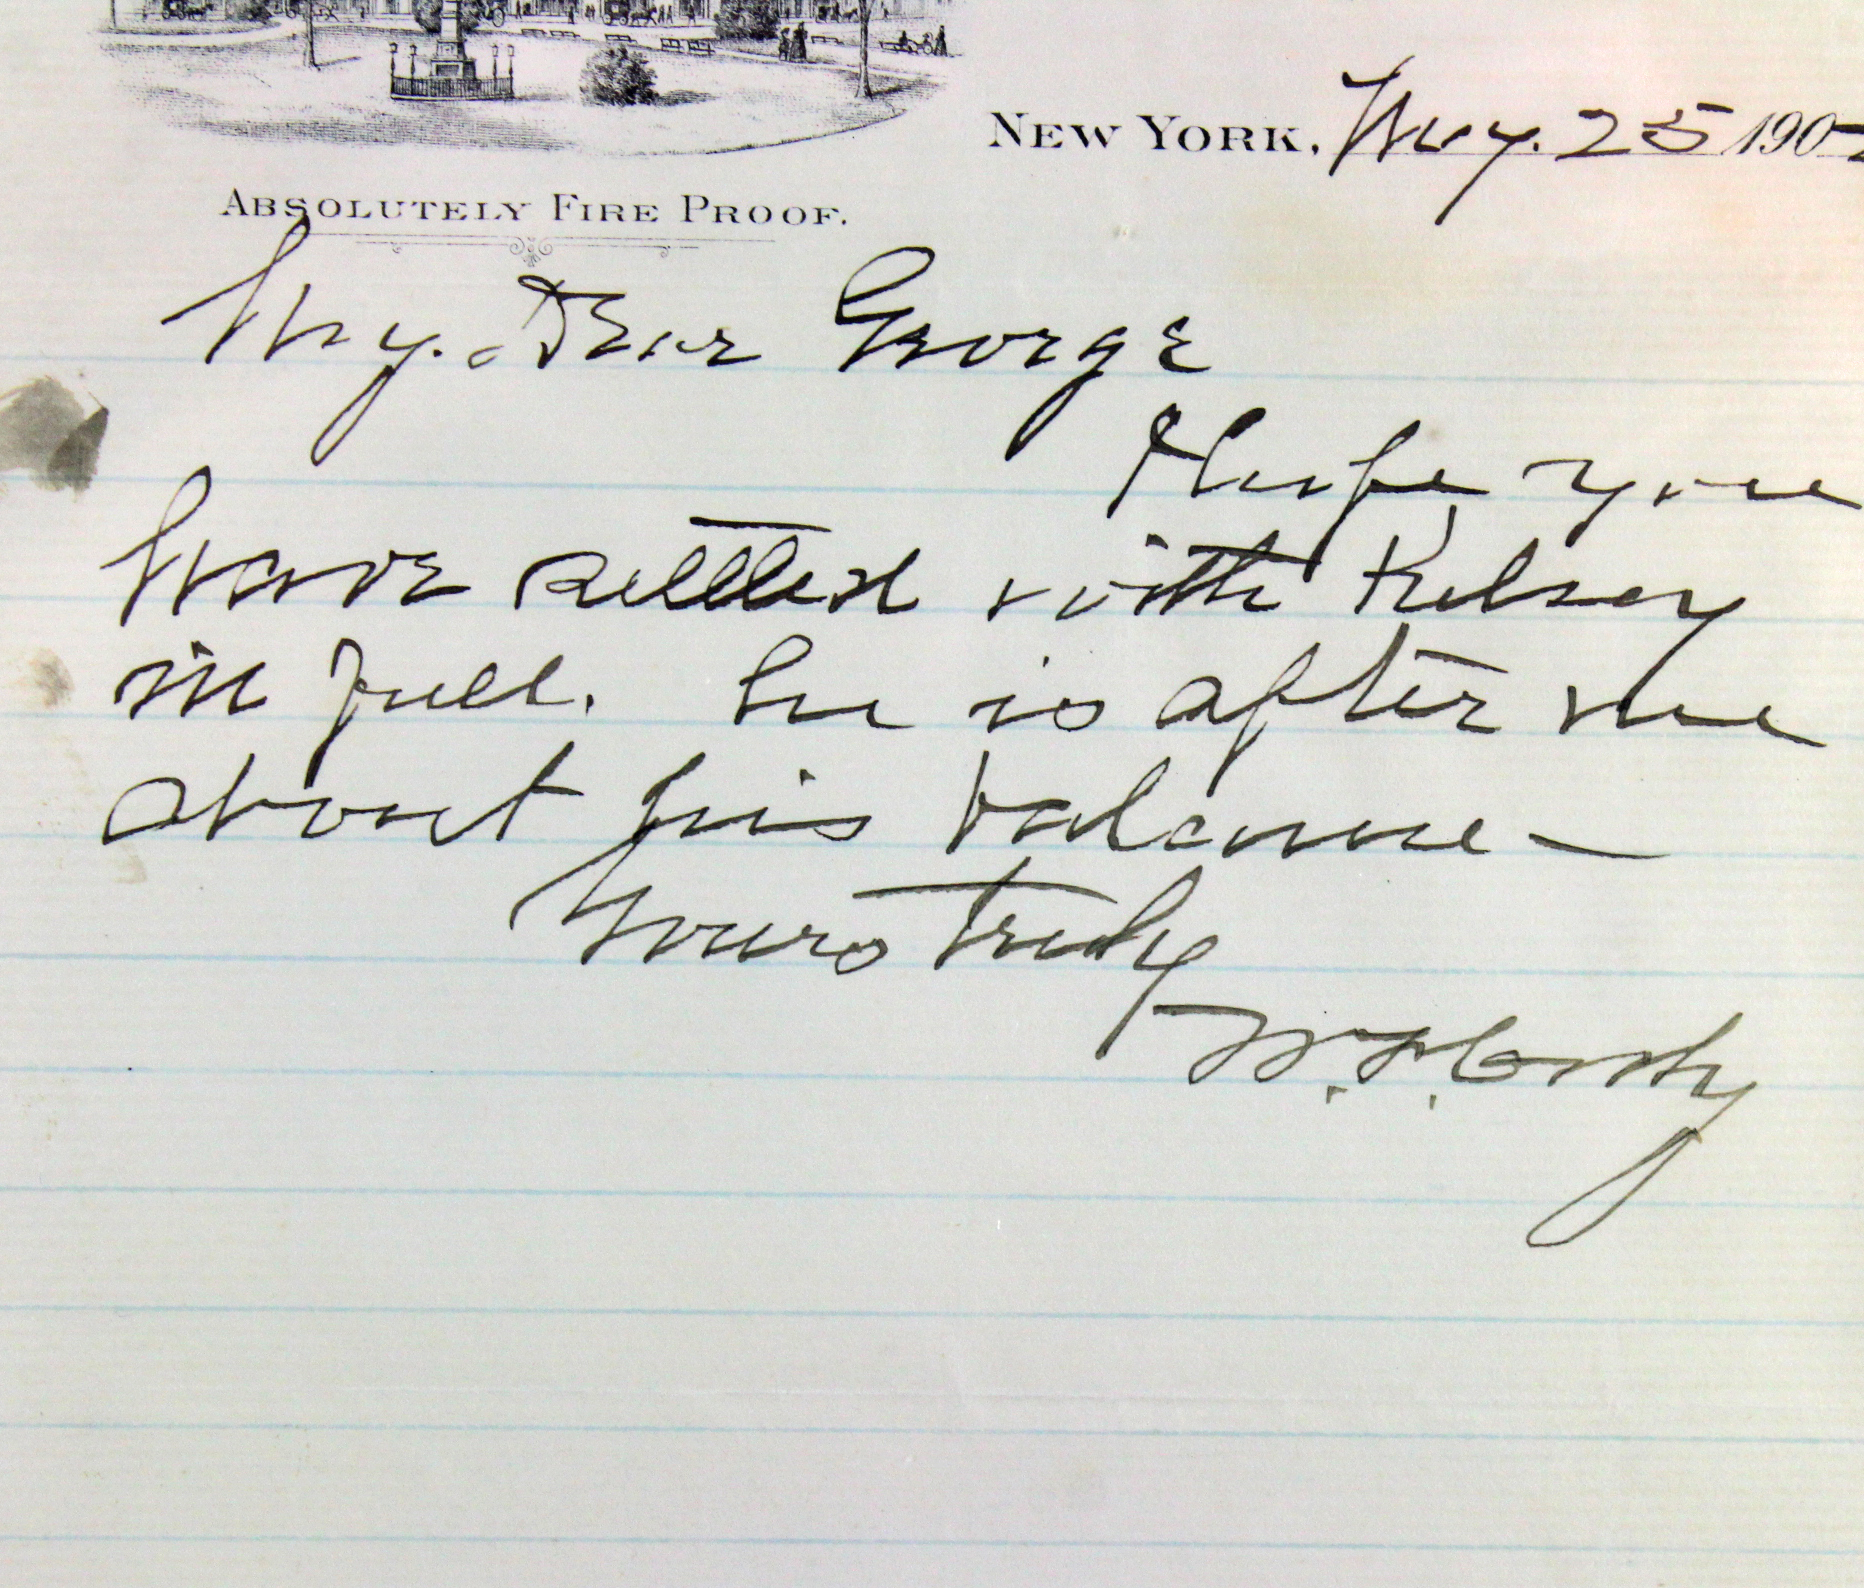 NEW YORK, May. 25 1902
ABSOLUTELY FIRE PROOF.
My. Dear George
Hope you
have settled with Kelsey
in full. he is after me
about his balance—
Yours truly
W. F. Cody